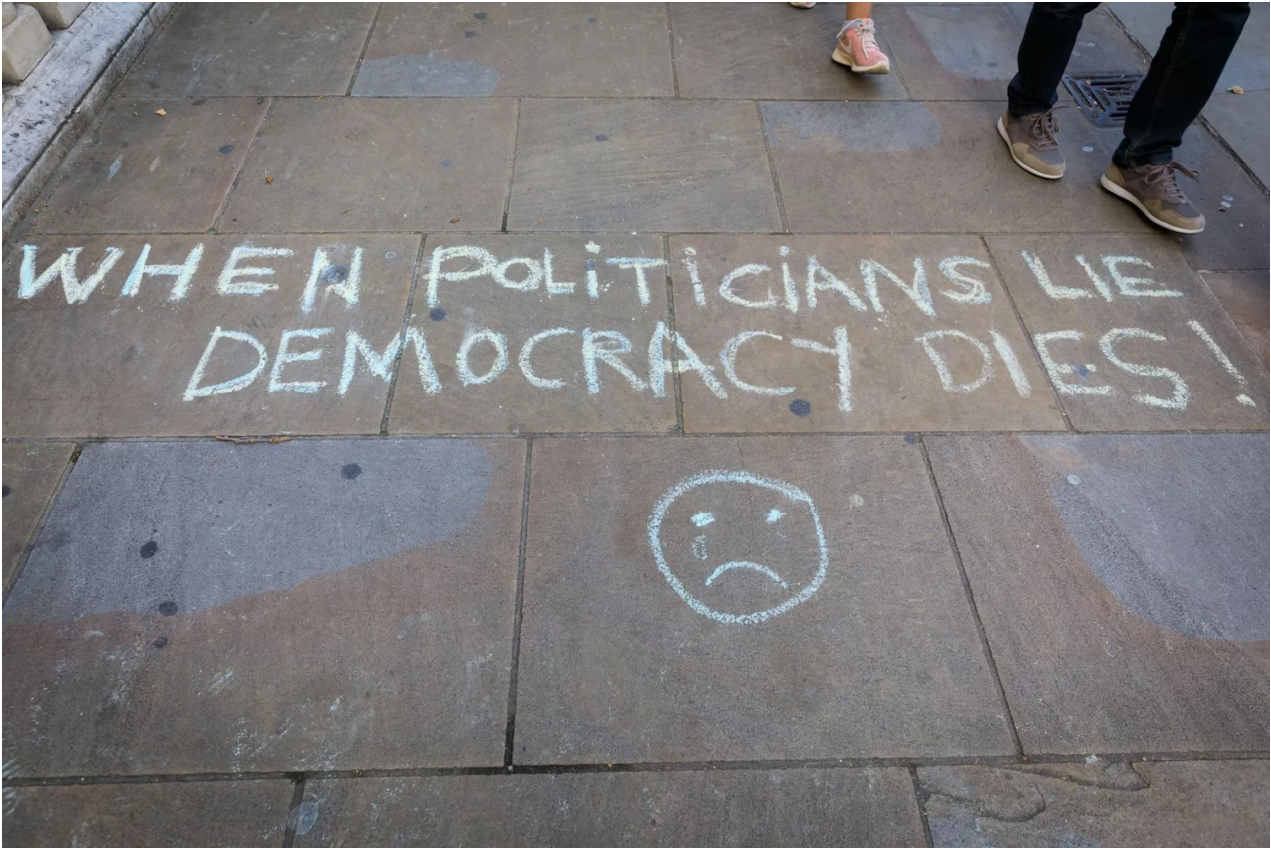 WHEN POLiTiCiANS LIE
DEMOCRACY DIES!